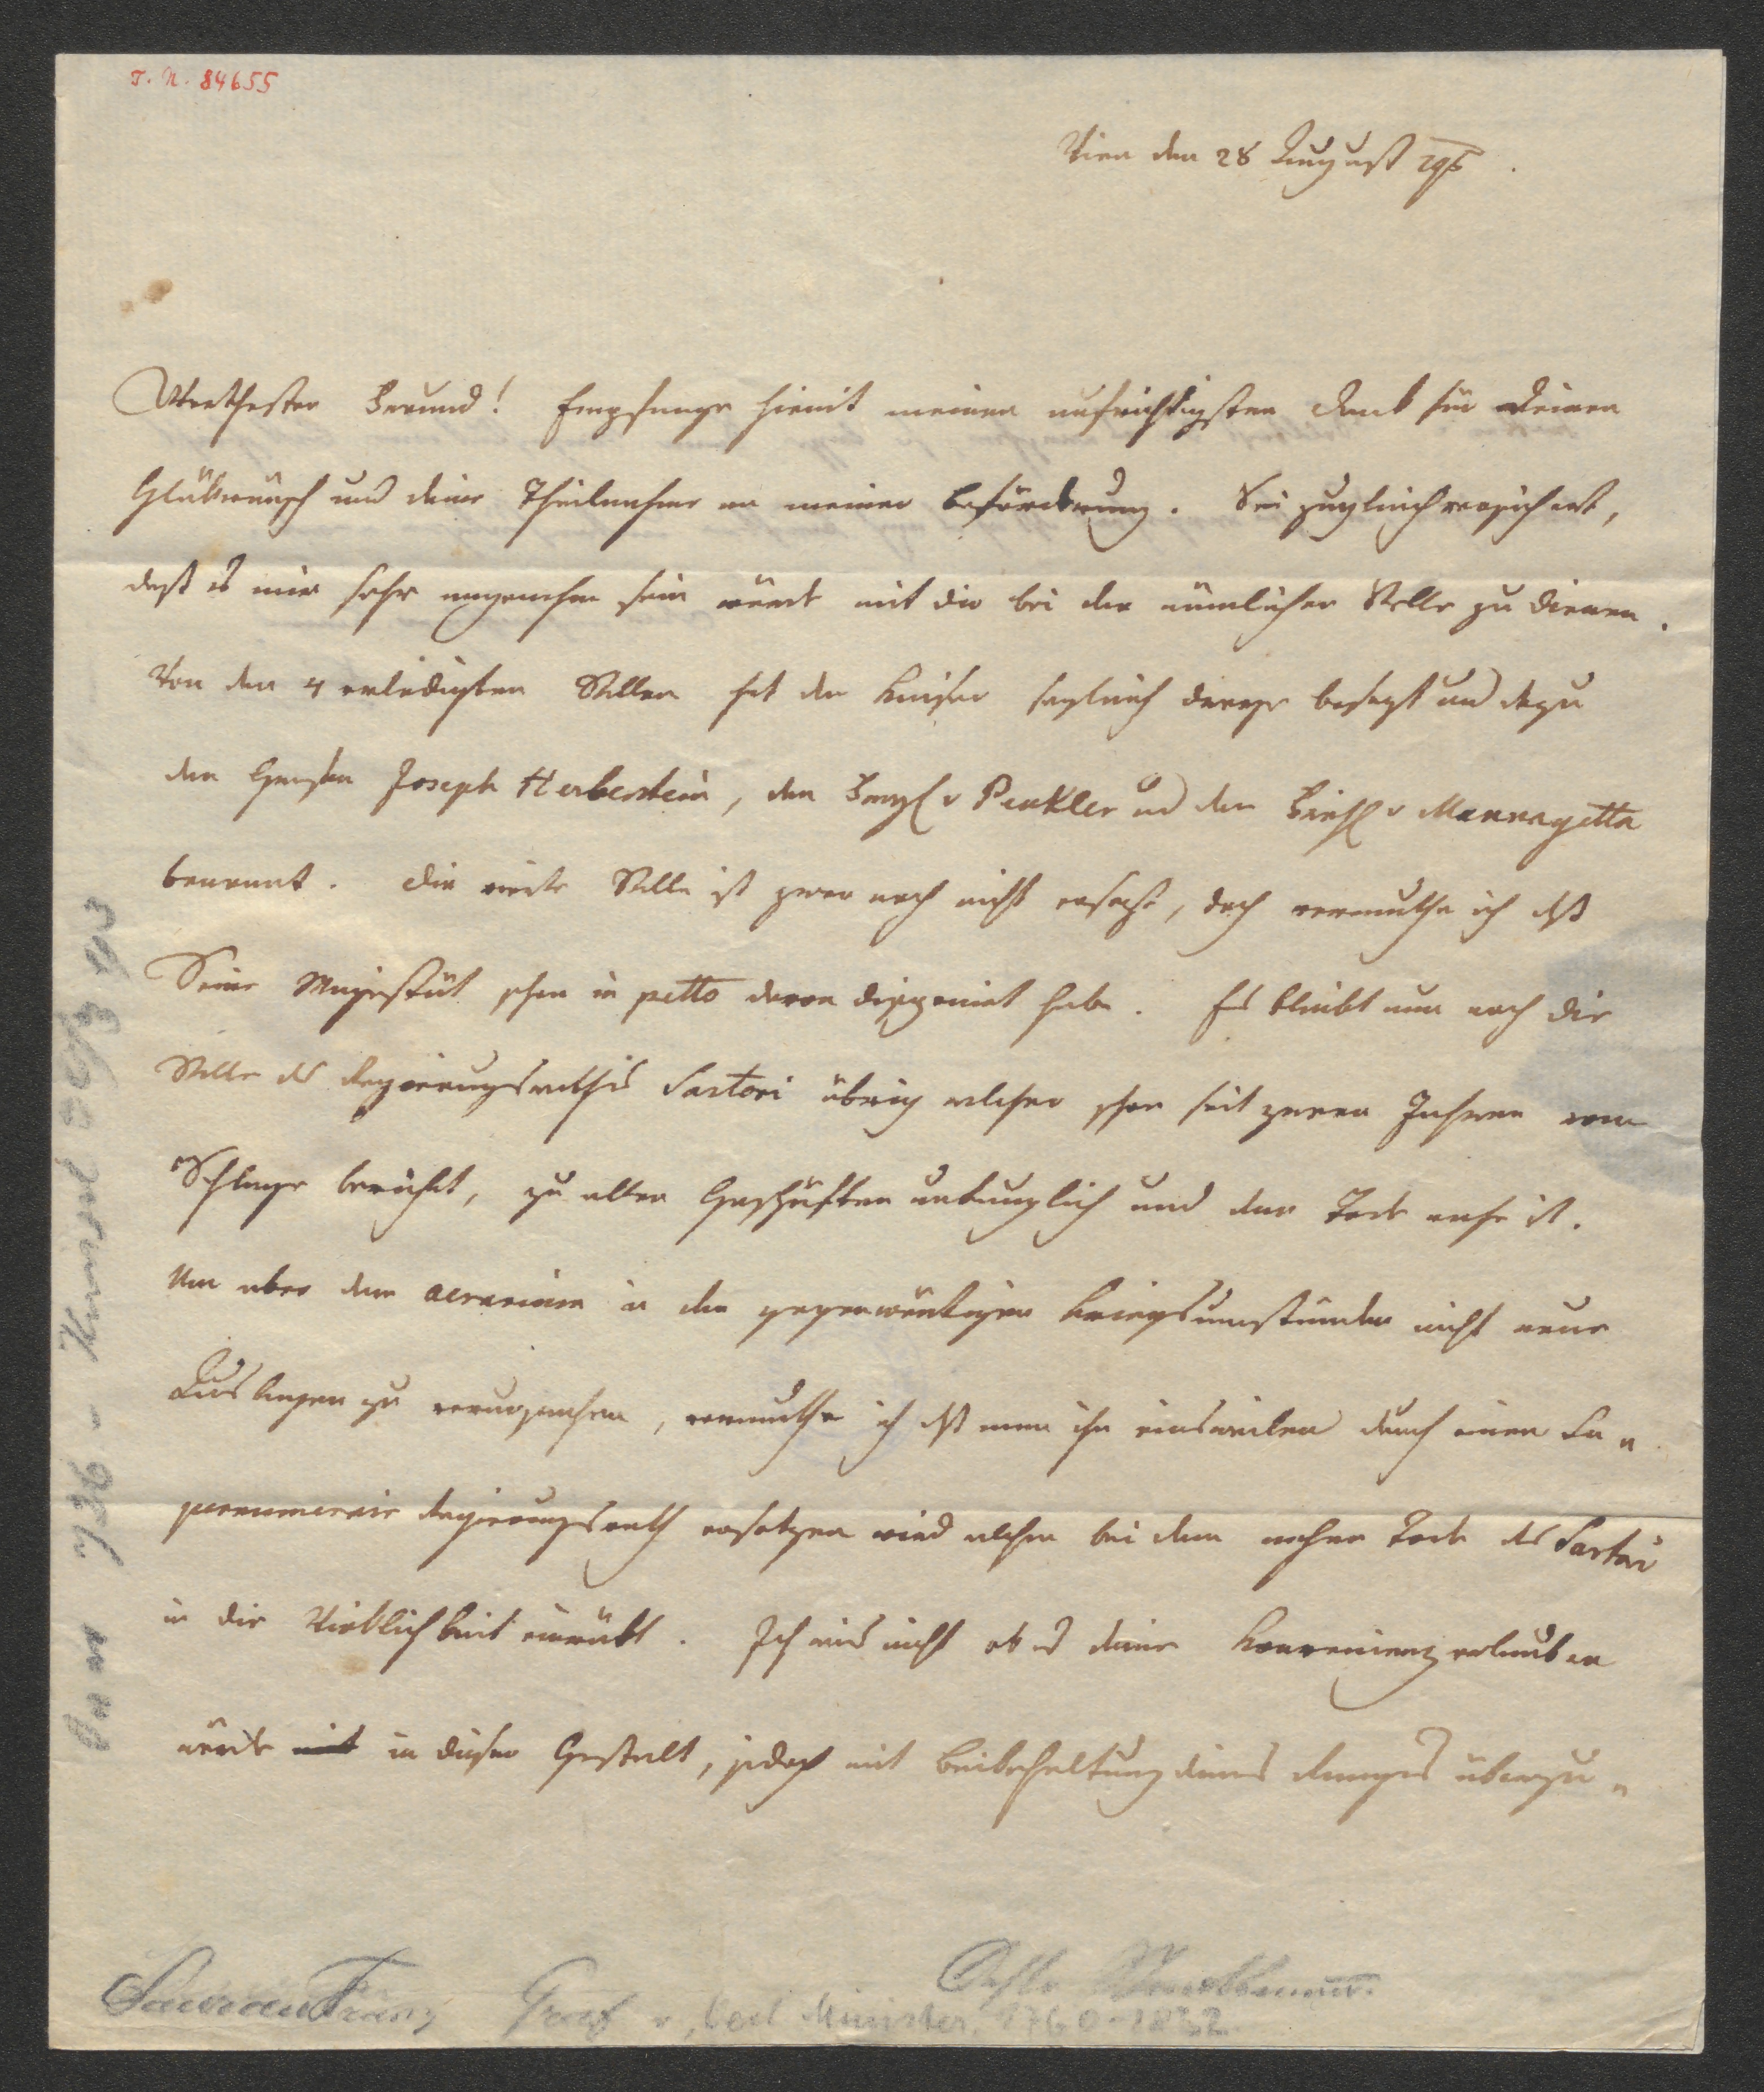 I. N. 84655
Wien den 28 August 795.
Werthester Freund! Empfange hiemit meinen aufrichtigsten Dank für Deinen
Glükwunsch und deine Theilnahme an meiner Beförderung. Sei zugleich versichert,
daß es mir sehr angenehm sein würde mit dir bei der nämlichen Stelle zu dienen.
Von den 4 erledigten Stellen hat der Kaiser sogleich dreye besezt und dazu
den Grafen Joseph Herberstein, den v Penkler und den v Mannagetta
benennt. Die vierte Stelle ist zwar noch nicht ersezt, doch vermuthe ich daß
Seine Majestät schon in petto davon disponirt habe. Es bleibt nun noch die
Stelle des Regierungsrathes Sartori übrig welcher schon seit zween Jahren vom
Schlage berührt, zu allen Geschäften untauglich und dem Tode nahe ist.
Um aber dem aerarium in den gegenwärtigen Kriegsumständen nicht neue
Auslagen zu verursachen, vermuthe ich daß man ihn einsweilen durch einen Su-
pernumerair Regierungsrath ersetzen wird welcher bei dem nahen Tode des Sartori
in die Wirklichkeit einrükt. Ich weis nicht ob es deine Konvenienz erlauben
würde mit in dieser Gestalt, jedoch mit Beibehaltung deines Ranges überzu-
Saurau Franz Graf v,
Minister. 1760-1832